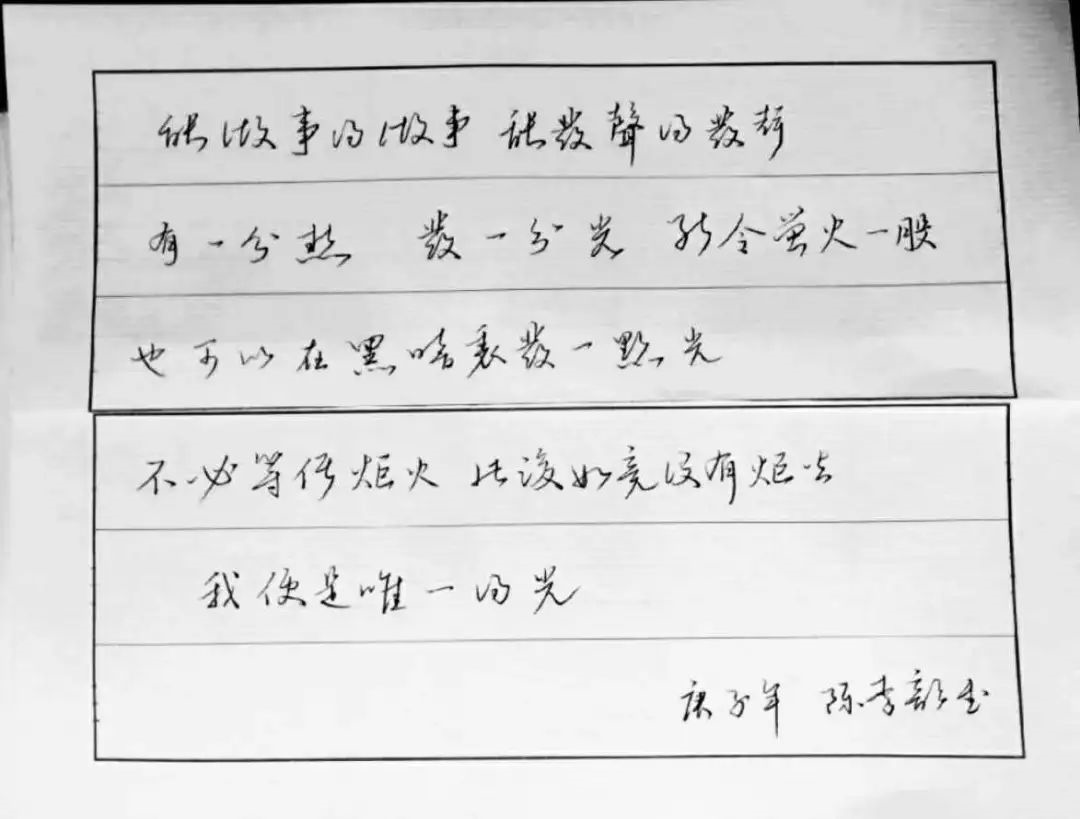 能做事的做事 能發聲的發聲
有一分熱 發一分光 就令萤火一般
也可以在黑暗裏發一點光
不必等候炬火 此後如竟没有炬火
我便是唯一的光
庚子年 陈李 书